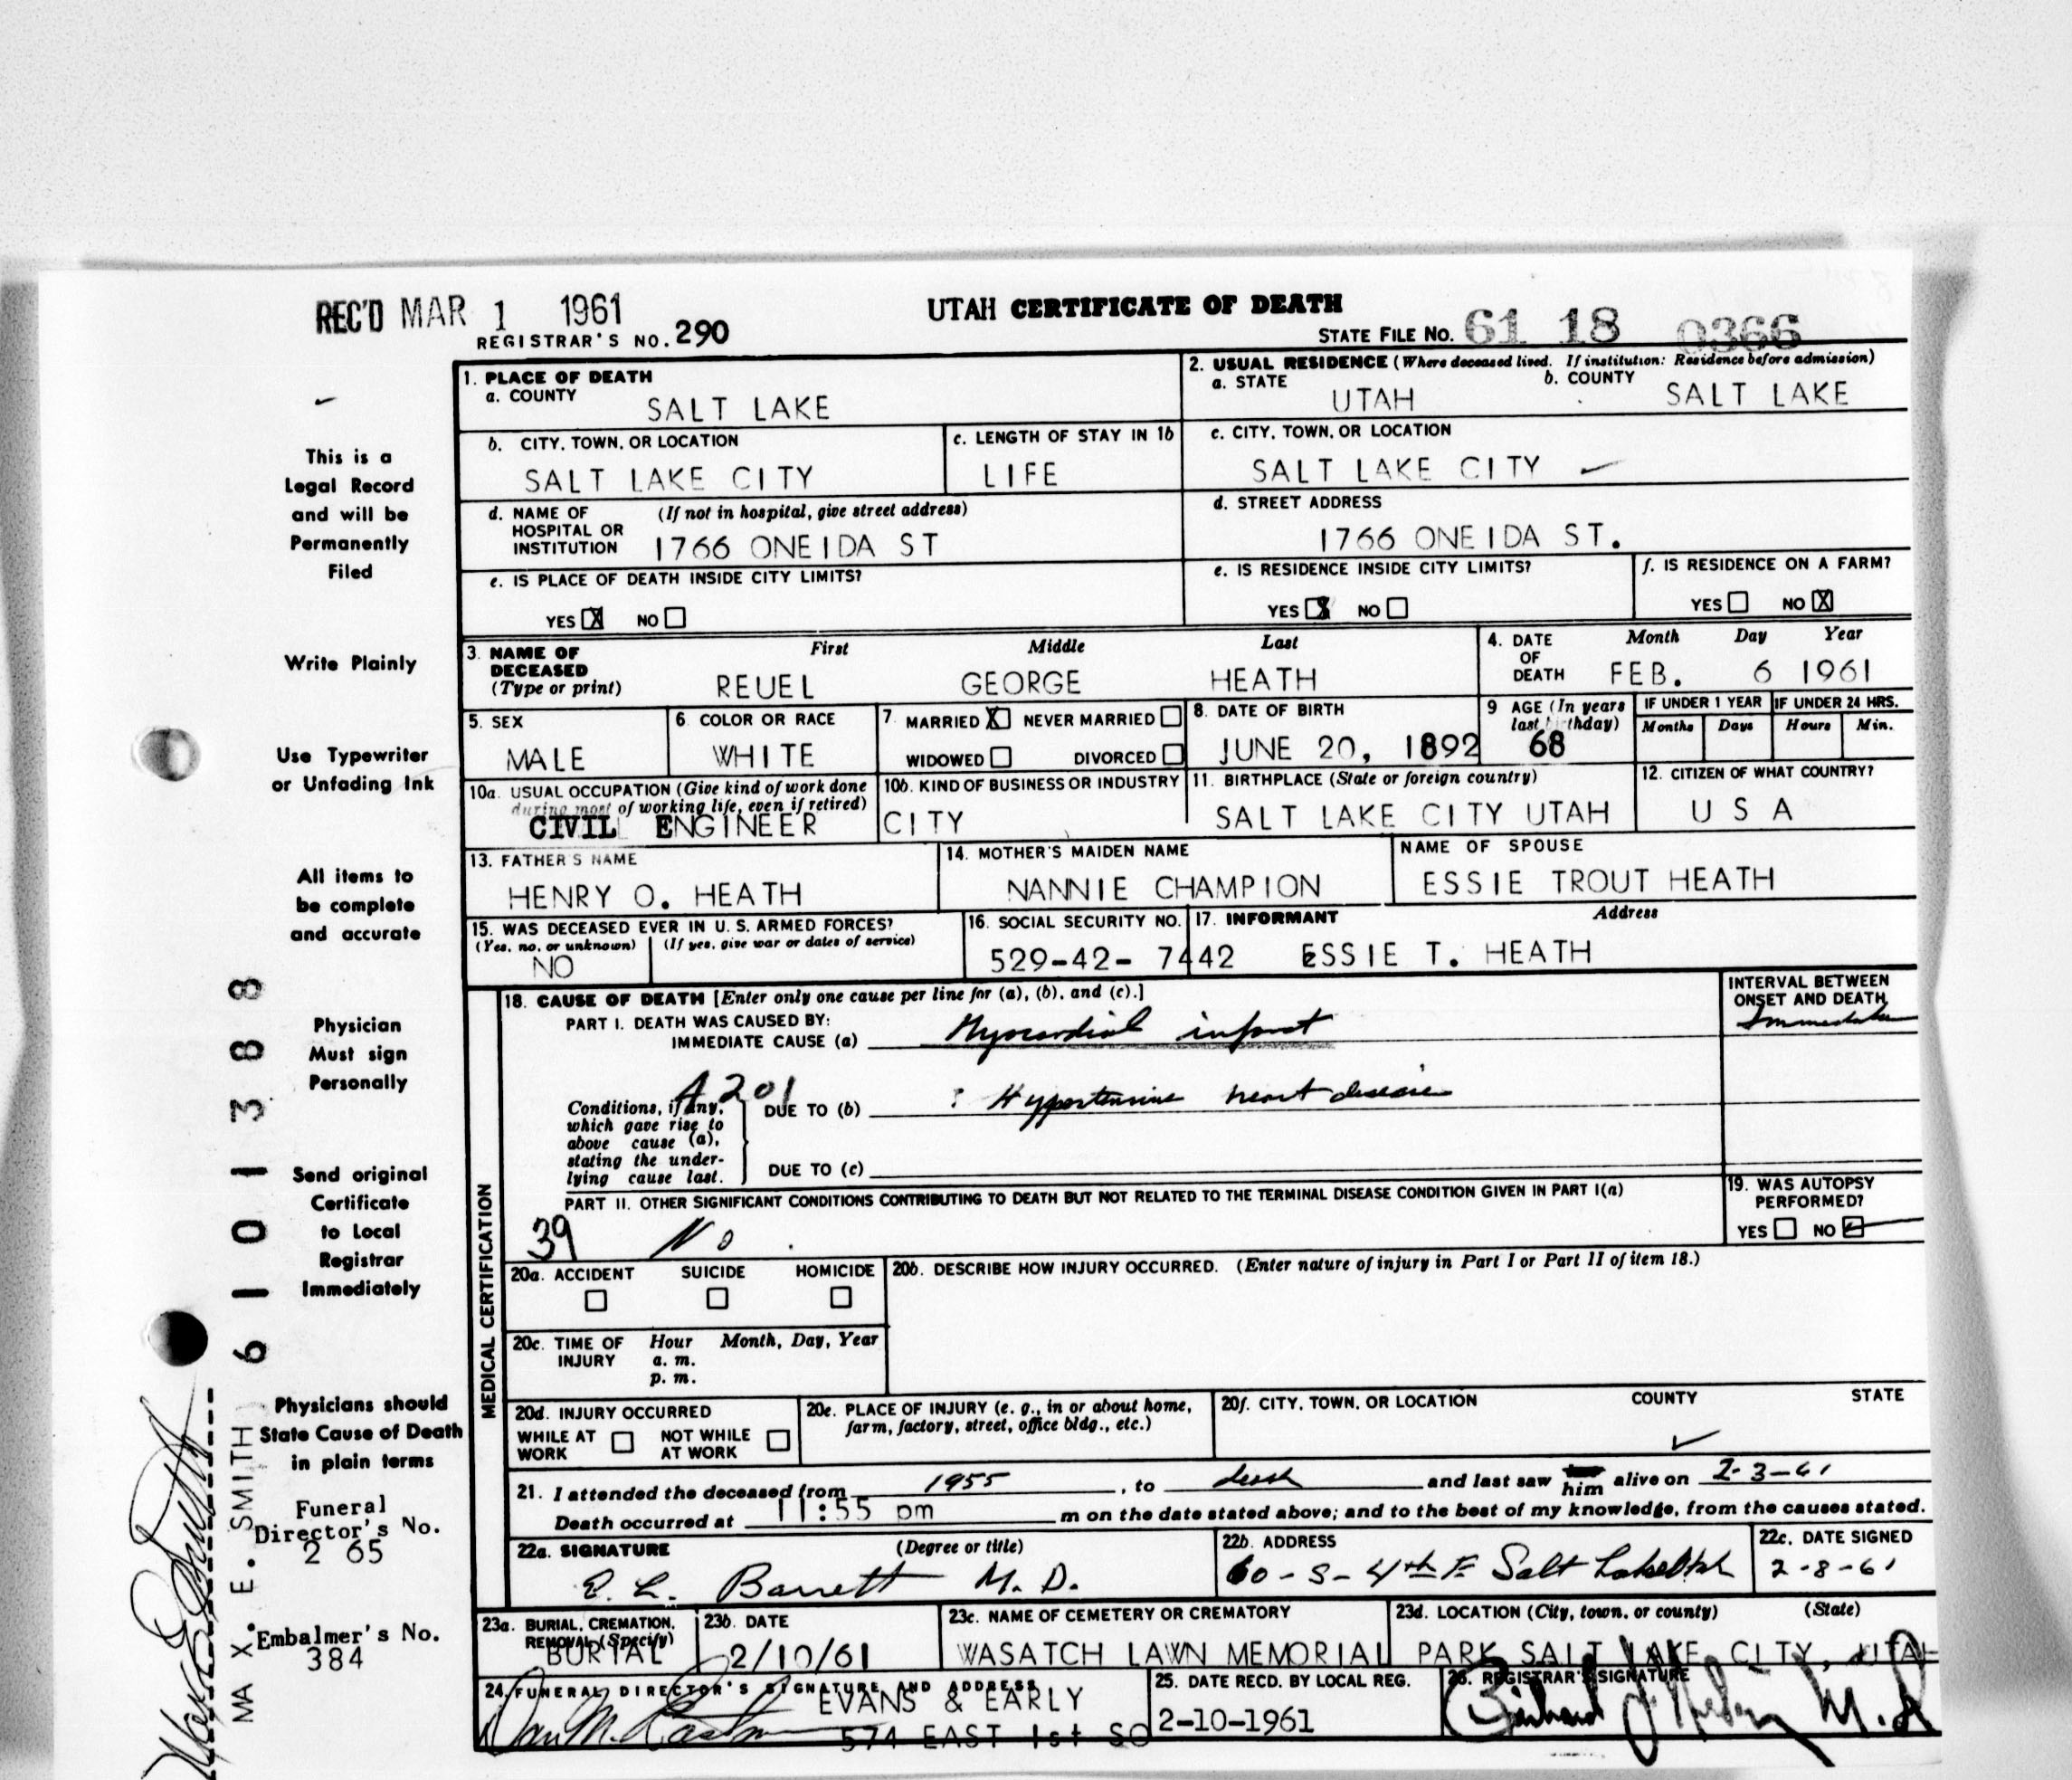 REC'D MAR 1 1961
UTAH CERTIFICATE OF DEATH
REGISTRAR'S NO. 290
STATE FILE NO. 61 18 0366
1. PLACE OF DEATH
a. COUNTY
SALT LAKE
2. USUAL RESIDENCE (Where deceased lived. If institution: Residence before admission)
a. STATE
UTAH
b. COUNTY
SALT LAKE
b. CITY, TOWN, OR LOCATION
SALT LAKE CITY
c. LENGTH OF STAY IN 1b
LIFE
c. CITY, TOWN, OR LOCATION
SALT LAKE CITY
d. NAME OF HOSPITAL OR INSTITUTION (If not in hospital, give street address)
1766 ONEIDA ST
d. STREET ADDRESS
1766 ONEIDA ST.
e. IS PLACE OF DEATH INSIDE CITY LIMITS?
YES X NO
e. IS RESIDENCE INSIDE CITY LIMITS?
YES X NO
f. IS RESIDENCE ON A FARM?
YES NO X
3. NAME OF DECEASED (Type or print)
First Middle Last
REUEL GEORGE HEATH
4. DATE OF DEATH
Month Day Year
FEB. 6 1961
5. SEX
MALE
6. COLOR OR RACE
WHITE
7. MARRIED X NEVER MARRIED
WIDOWED DIVORCED
8. DATE OF BIRTH
JUNE 20, 1892
9 AGE (In years last birthday)
68
IF UNDER 1 YEAR
Months Days
IF UNDER 24 HRS.
Hours Min.
10a. USUAL OCCUPATION (Give kind of work done
during most of working life, even if retired)
CIVIL ENGINEER
10b. KIND OF BUSINESS OR INDUSTRY
CITY
11. BIRTHPLACE (State or foreign country)
SALT LAKE CITY UTAH
12. CITIZEN OF WHAT COUNTRY?
U S A
13. FATHER'S NAME
HENRY O. HEATH
14. MOTHER'S MAIDEN NAME
NANNIE CHAMPION
NAME OF SPOUSE
ESSIE TROUT HEATH
15. WAS DECEASED EVER IN U. S. ARMED FORCES?
(Yes, no, or unknown) (If yes, give war or dates of service)
NO
16. SOCIAL SECURITY NO.
529-42- 7442
17. INFORMANT Address
ESSIE T. HEATH
MEDICAL CERTIFICATION
18. CAUSE OF DEATH [Enter only one cause per line for (a), (b), and (c).]
INTERVAL BETWEEN ONSET AND DEATH
PART I. DEATH WAS CAUSED BY:
IMMEDIATE CAUSE (a) Myocardial infarct
Immediate
A201
Conditions, if any, which gave rise to above cause (a), stating the underlying cause last.
DUE TO (b) ? Hypertensive heart disease
DUE TO (c)
PART II. OTHER SIGNIFICANT CONDITIONS CONTRIBUTING TO DEATH BUT NOT RELATED TO THE TERMINAL DISEASE CONDITION GIVEN IN PART I(a)
39 No
19. WAS AUTOPSY PERFORMED?
YES NO
20a. ACCIDENT SUICIDE HOMICIDE
20b. DESCRIBE HOW INJURY OCCURRED. (Enter nature of injury in Part I or Part II of item 18.)
20c. TIME OF INJURY
Hour Month, Day, Year
a. m.
p. m.
20d. INJURY OCCURRED
WHILE AT WORK NOT WHILE AT WORK
20e. PLACE OF INJURY (e. g., in or about home,
farm, factory, street, office bldg., etc.)
20f. CITY, TOWN, OR LOCATION COUNTY STATE
21. I attended the deceased from 1955, to death and last saw him alive on 2-3-61
Death occurred at 11:55 pm m on the date stated above; and to the best of my knowledge, from the causes stated.
22a. SIGNATURE (Degree or title)
E. L. Barrett M. D.
22b. ADDRESS
60 - S - 4th E Salt Lake Utah
22c. DATE SIGNED
2-8-61
23a. BURIAL, CREMATION, REMOVAL (Specify)
BURIAL
23b. DATE
2/10/61
23c. NAME OF CEMETERY OR CREMATORY
WASATCH LAWN MEMORIAL PARK
23d. LOCATION (City, town, or county) (State)
SALT LAKE CITY, UTAH
24. FUNERAL DIRECTOR'S SIGNATURE AND ADDRESS
EVANS & EARLY
574 EAST 1st SO
25. DATE RECD. BY LOCAL REG.
2-10-1961
26. REGISTRAR'S SIGNATURE
This is a
Legal Record
and will be
Permanently
Filed
Write Plainly
Use Typewriter
or Unfading Ink
All items to
be complete
and accurate
Physician
Must sign
Personally
Send original
Certificate
to Local
Registrar
Immediately
Physicians should
State Cause of Death
in plain terms
Funeral
Director's No.
2 65
Embalmer's No.
384
MAX. E. SMITH
6 10 1 388